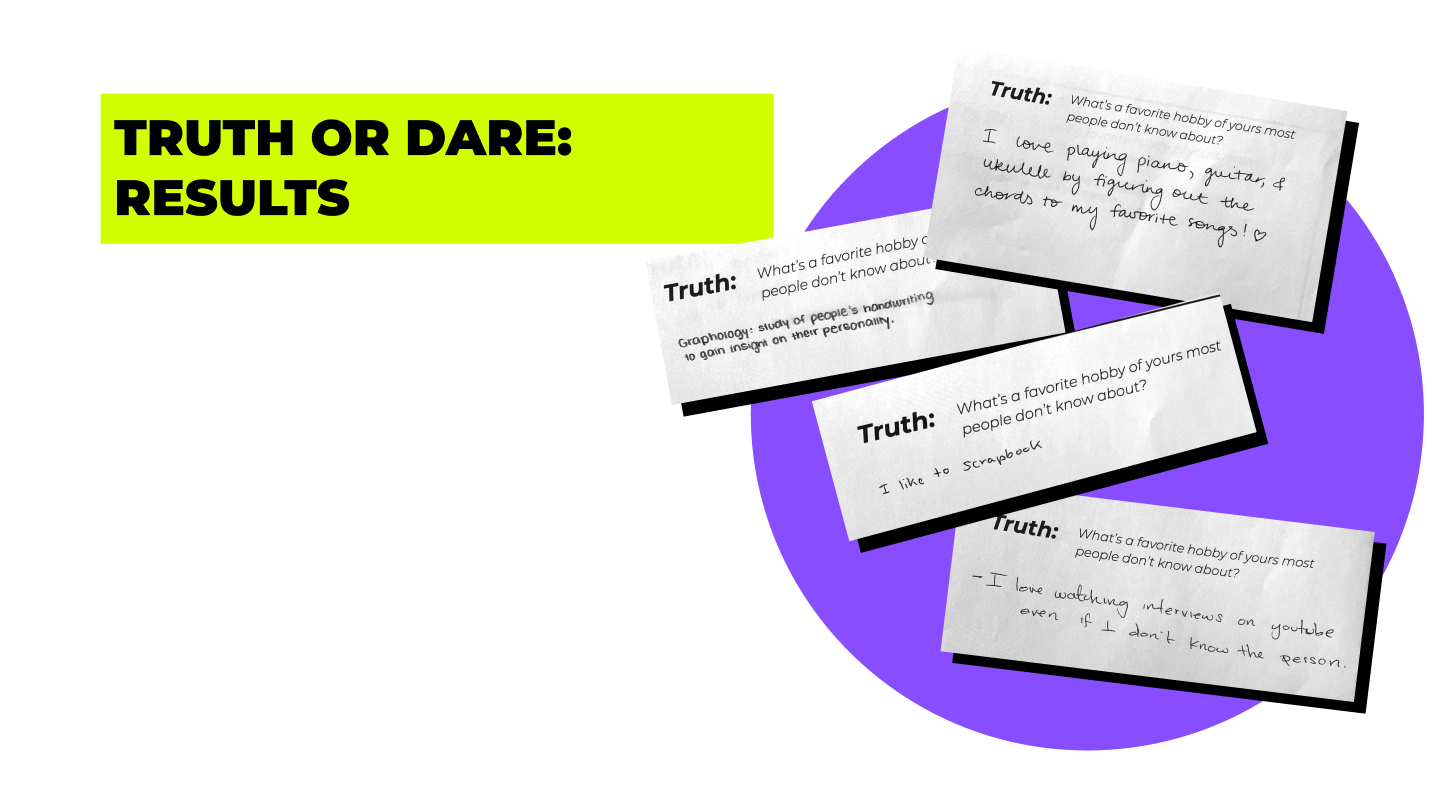 TRUTH OR DARE:
RESULTS
Truth: What's a favorite hobby of yours most
people don't know about?
I love playing piano, guitar, &
ukulele by figuring out the
chords to my favorite songs! ♡
Truth: What's a favorite hobby
people don't know about?
Graphology: study of people's handwriting
to gain insight on their personality.
Truth: What's a favorite hobby of yours most
people don't know about?
I like to scrapbook
Truth: What's a favorite hobby of yours most
people don't know about?
- I love watching interviews on youtube
even if I don't know the person.